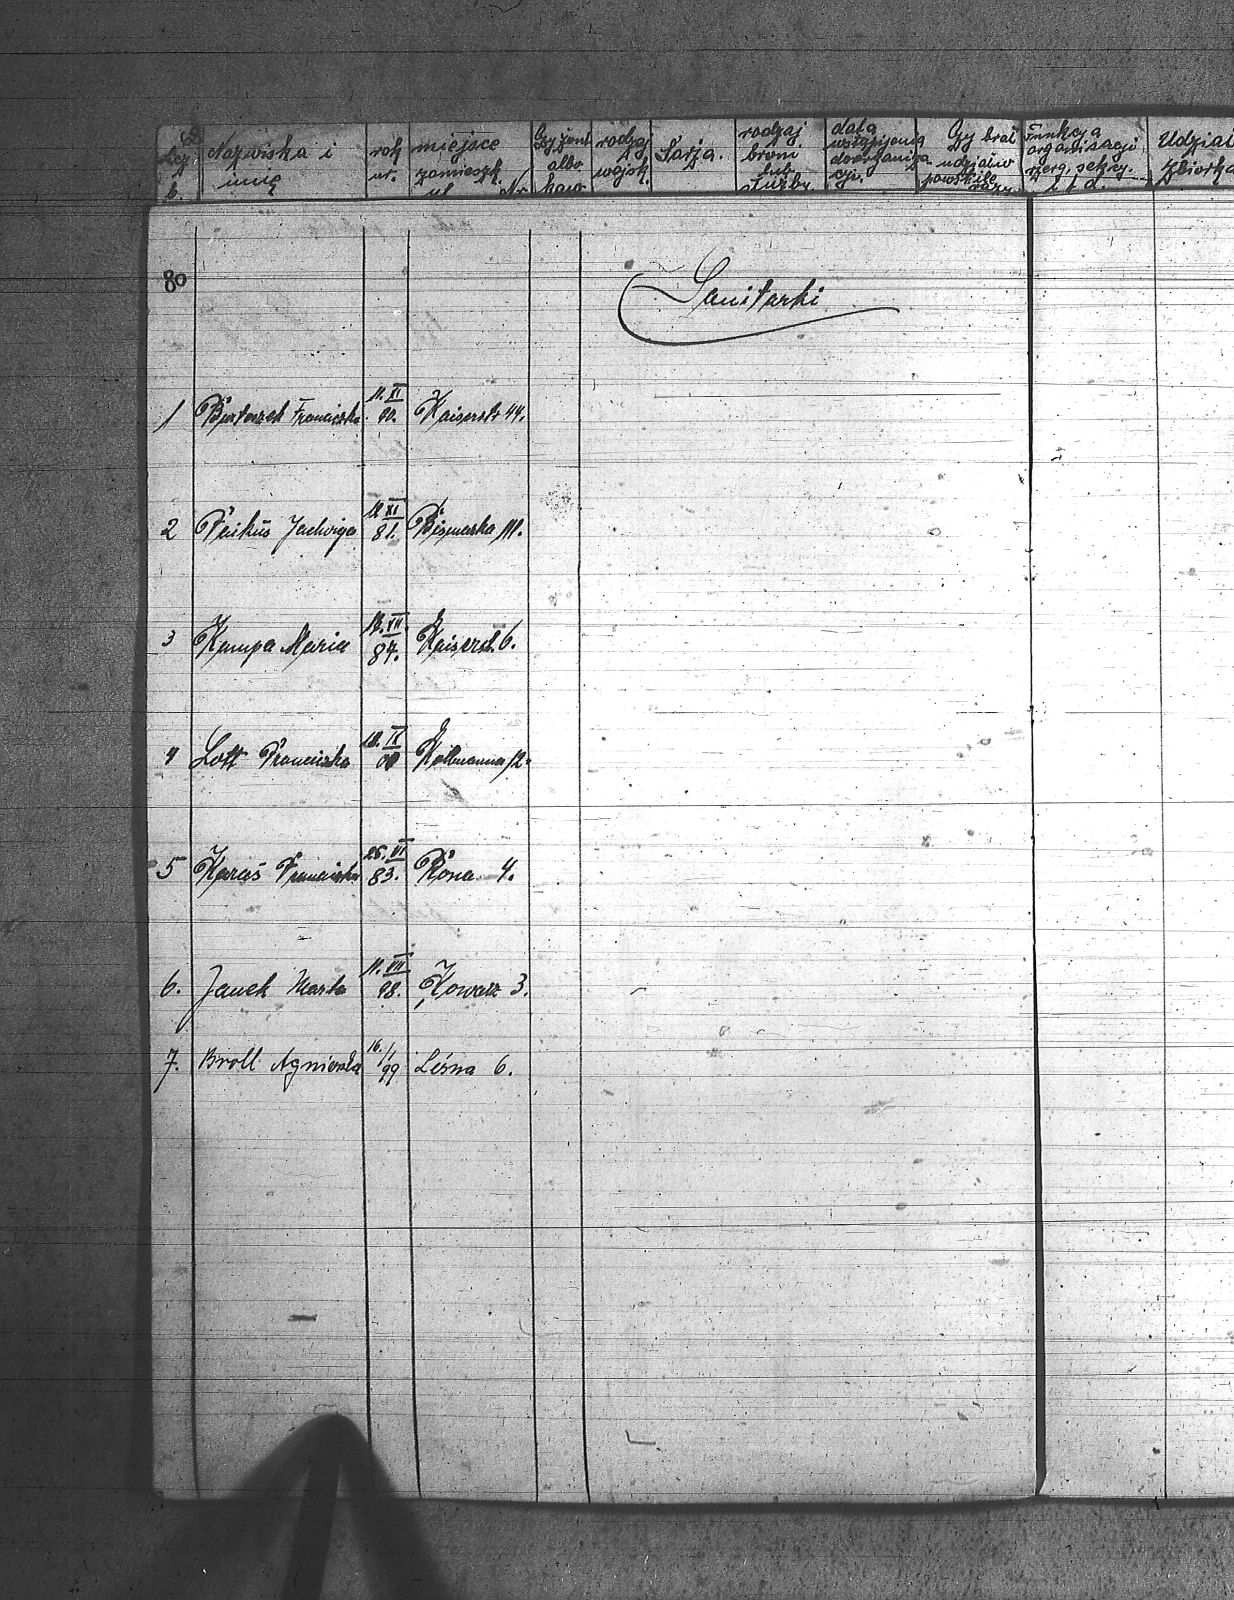 Nazwiska i
imię
rok
ur.
miejsce
zamieszk.
ul. Nr.
Czy żon.
albo
kaw.
rodzaj
wojsk.
Sarża.
rodzaj
broni
lub
służby
data
wstąpienia
do organiza
cji.
Czy brał
udział w
powst. ile
razy
Funkcja
organizacji
rzerg, sekcy.
i t d.
Udział
Zbiórka
80
Sanitarki
1 Bartoszek Franciszka 11. XI 90. Kaiserstr 44.
2 Paikus Jadwiga 12 XI 81. Bismarka 111.
3 Kampa Maria 13. VII 84. Kaiserst. 6.
4 Lott Franciszka 10. IX 00 Kollmanna 12.
5 Karaś Franciszka 25. VI 83. Róna 4.
6. Janek Marta 11. VII 98. Kowacz 3.
7. Broll Agnieszka 16. 1/99 Leśna 6.